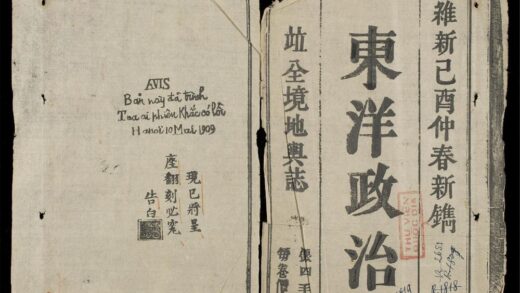 AVIS
Bản này đã trình
Toà ai phiên Khắc có lỗi
Hanoi 10 Mai 1909
現已將呈
座翻刻必究
告白
維新己酉仲春新鐫
東洋政治
竝全境地輿誌